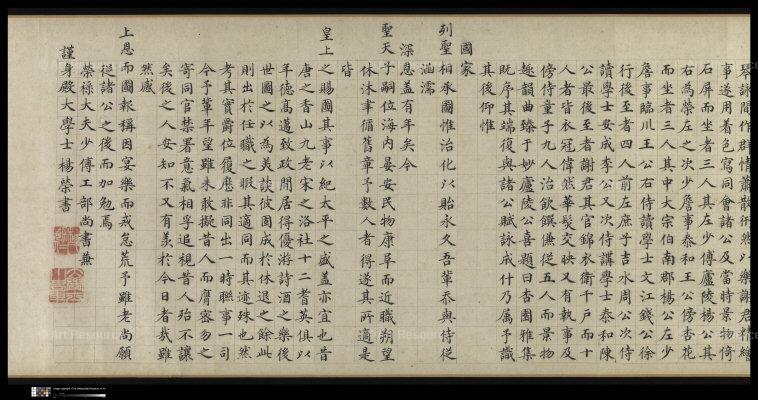 琴詠間作群情蕭散衎然以樂謝君精繪
事遂用着色寫同會諸公及當時景物倚
石屏而坐者三人其左少傅廬陵楊公其
右為榮左之次少詹事泰和王公傍杏花
而坐者三人其中大宗伯南郡楊公左少
詹事臨川王公右侍讀學士文江錢公徐
行後至者四人前左庶子吉水周公次侍
讀學士安成李公又次侍講學士泰和陳
公最後至者謝君其官錦衣衛千戶而十
人者皆衣冠偉然華髮交映又有執事及
傍侍童子九人治飲饌傔從五人而景物
趣韻曲臻于妙廬陵公喜題曰杏園雅集
既序其端復與諸公賦詠成什乃属予識
其後仰惟
國家
列聖相承圖惟治化以貽永久吾輩忝與侍從
涵濡
深恩蓋有年矣今
聖天子嗣位海内晏安民物康阜而近職朔望
休沐聿循舊章予數人者得遂其所適是
皆
皇上之賜圖其事以紀太平之盛蓋亦宜也昔
唐之香山九老宋之洛社十二耆英俱以
年德高邁致政閒居得優游詩酒之樂後
世圖之以為美談彼固成於休退之餘此
則出於任職之暇其適同而其迹殊也然
考其實爵位履歷非同出一時聯事一司
今予輩年望雖未敢擬昔人而膺密勿之
寄同官禁署意氣相孚追視昔人殆不讓
矣後之人安知不又有羨於今日者哉雖
然感
上恩而圖報稱因宴樂而戒怠荒予雖老尚願
從諸公之後而加勉焉
榮祿大夫少傅工部尚書兼
謹身殿大學士楊榮書